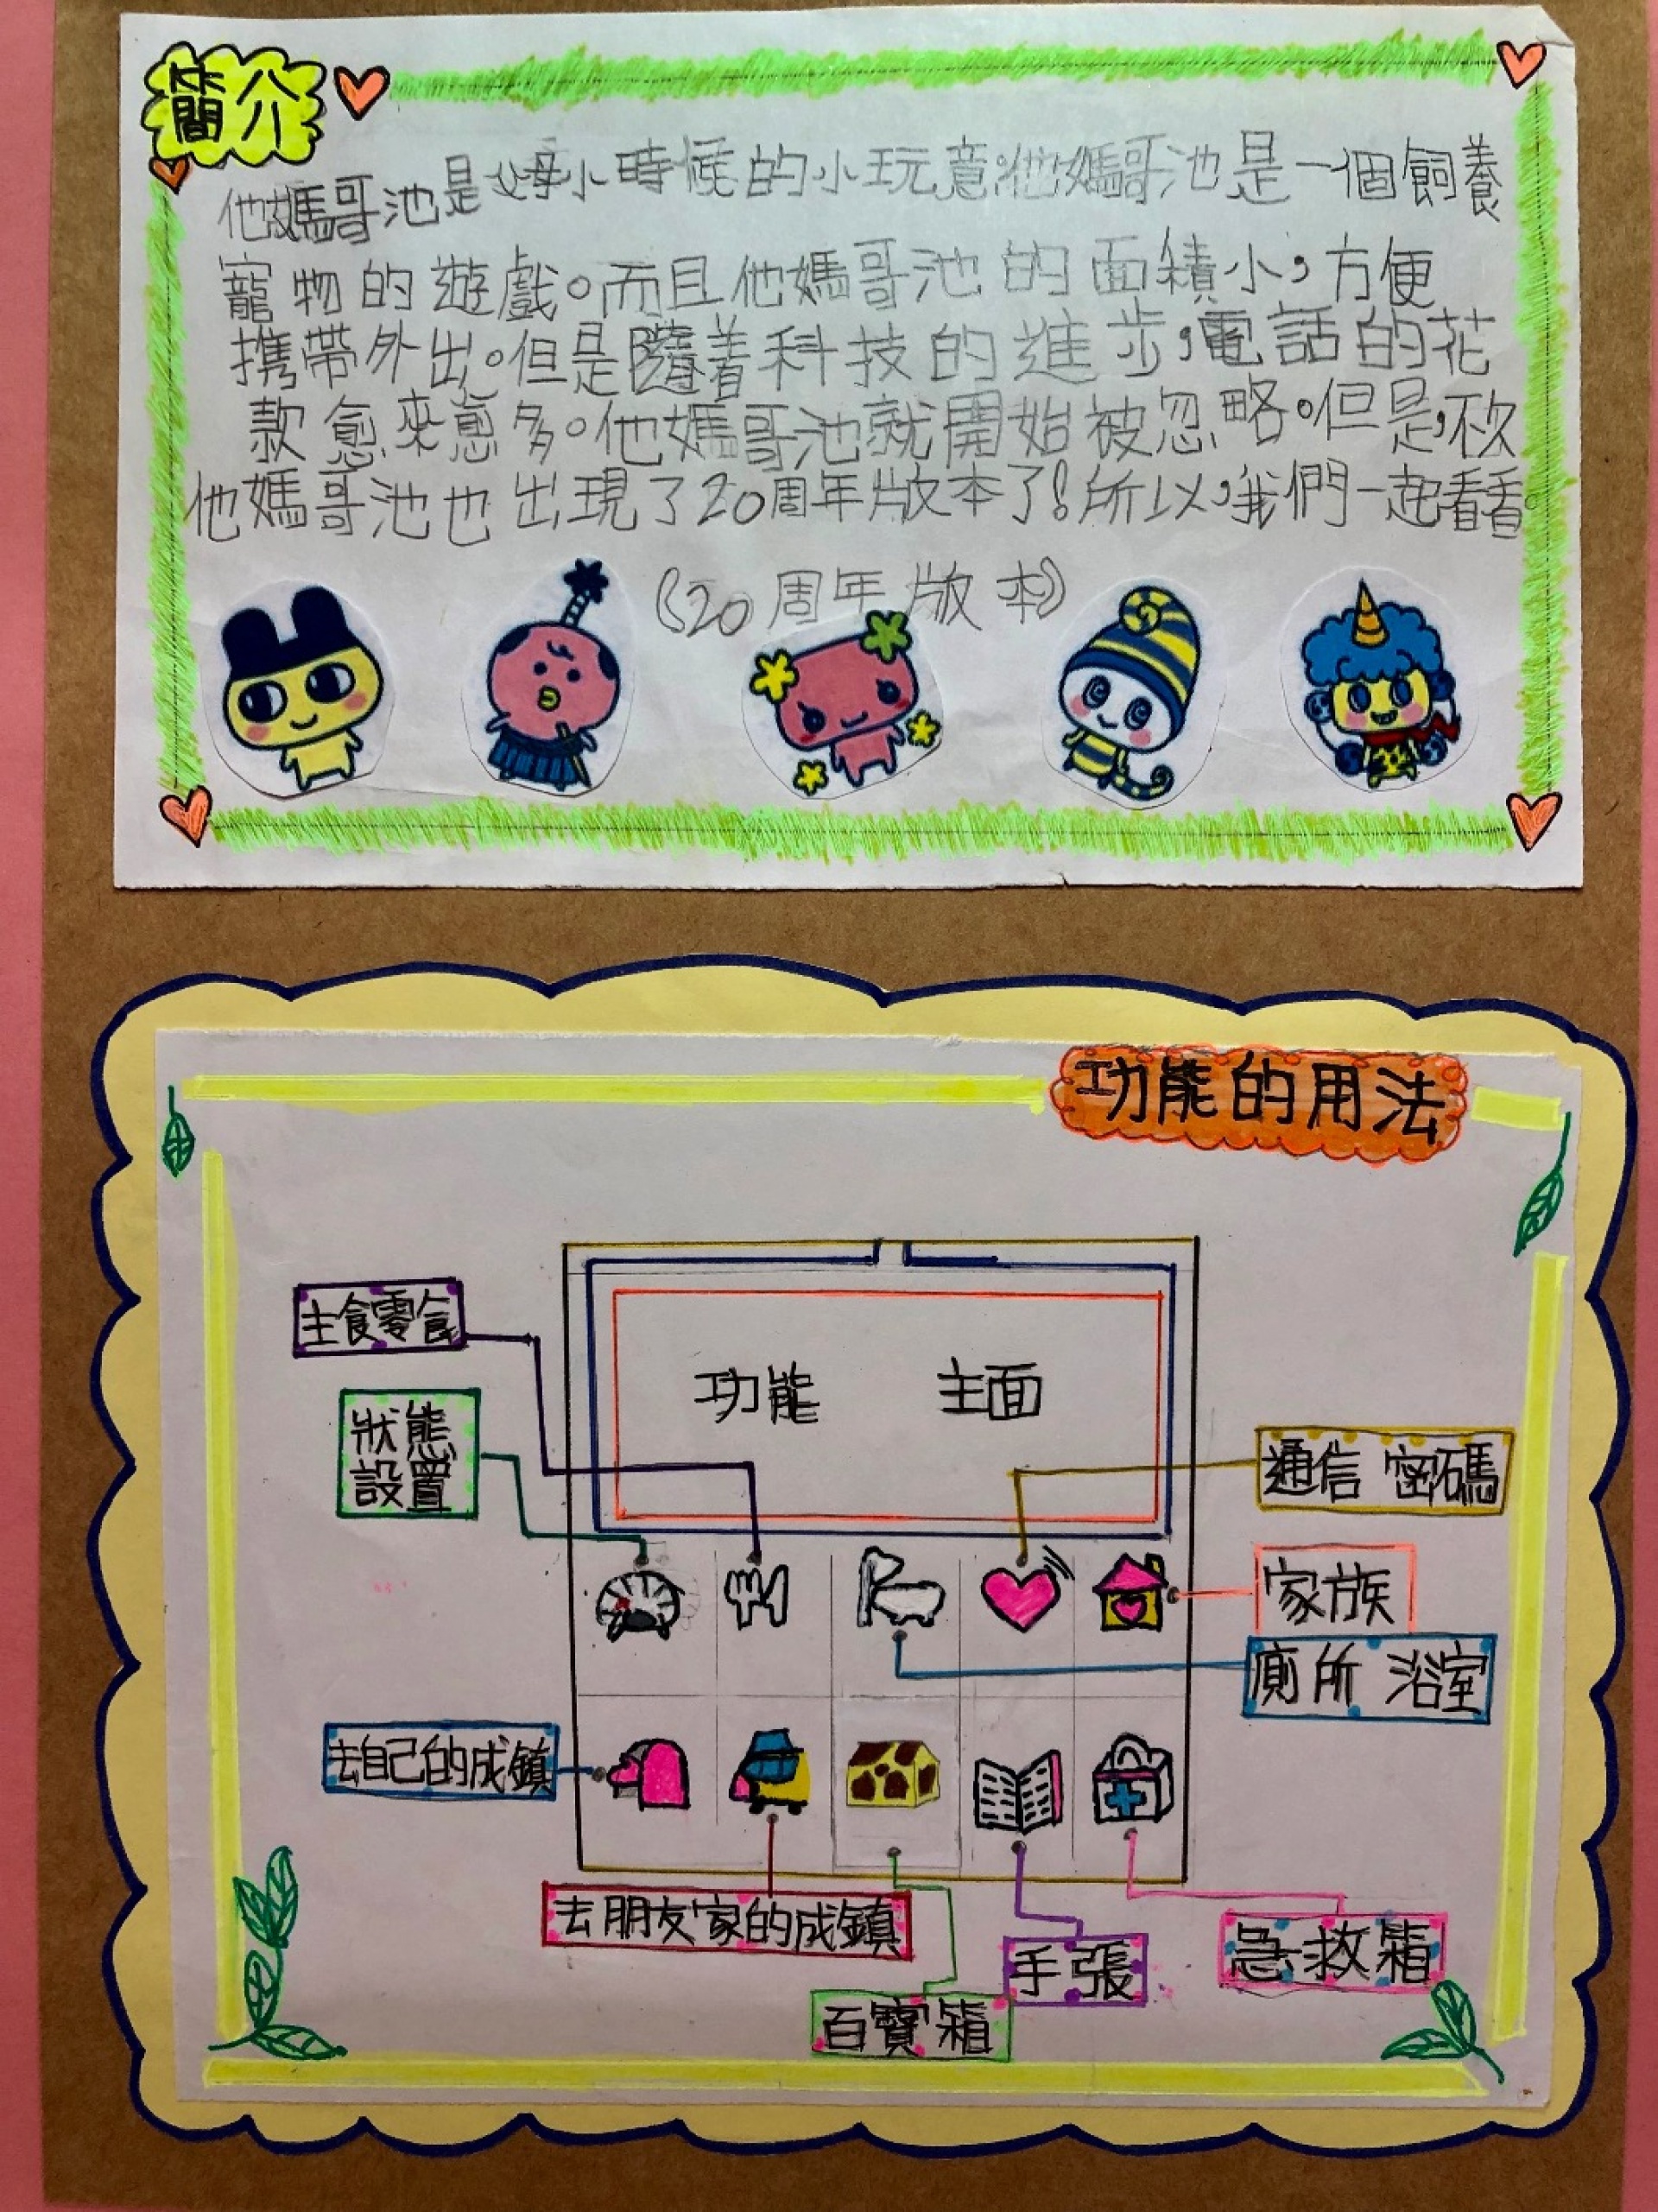 簡介
他媽哥池是父母小時候的小玩意。他媽哥池是一個飼養
寵物的遊戲。而且他媽哥池的面積小，方便
携帶外出。但是隨着科技的進步，電話的花
款愈來愈多。他媽哥池就開始被忽略。但是，
他媽哥池也出現了20周年版本了！所以，我們一起看看。
《20周年版本》
功能的用法
主食零食
功能 主面
狀態
設置
通信 密碼
家族
廁所 浴室
去自己的成鎮
去朋友家的成鎮
手張
急救箱
百寶箱